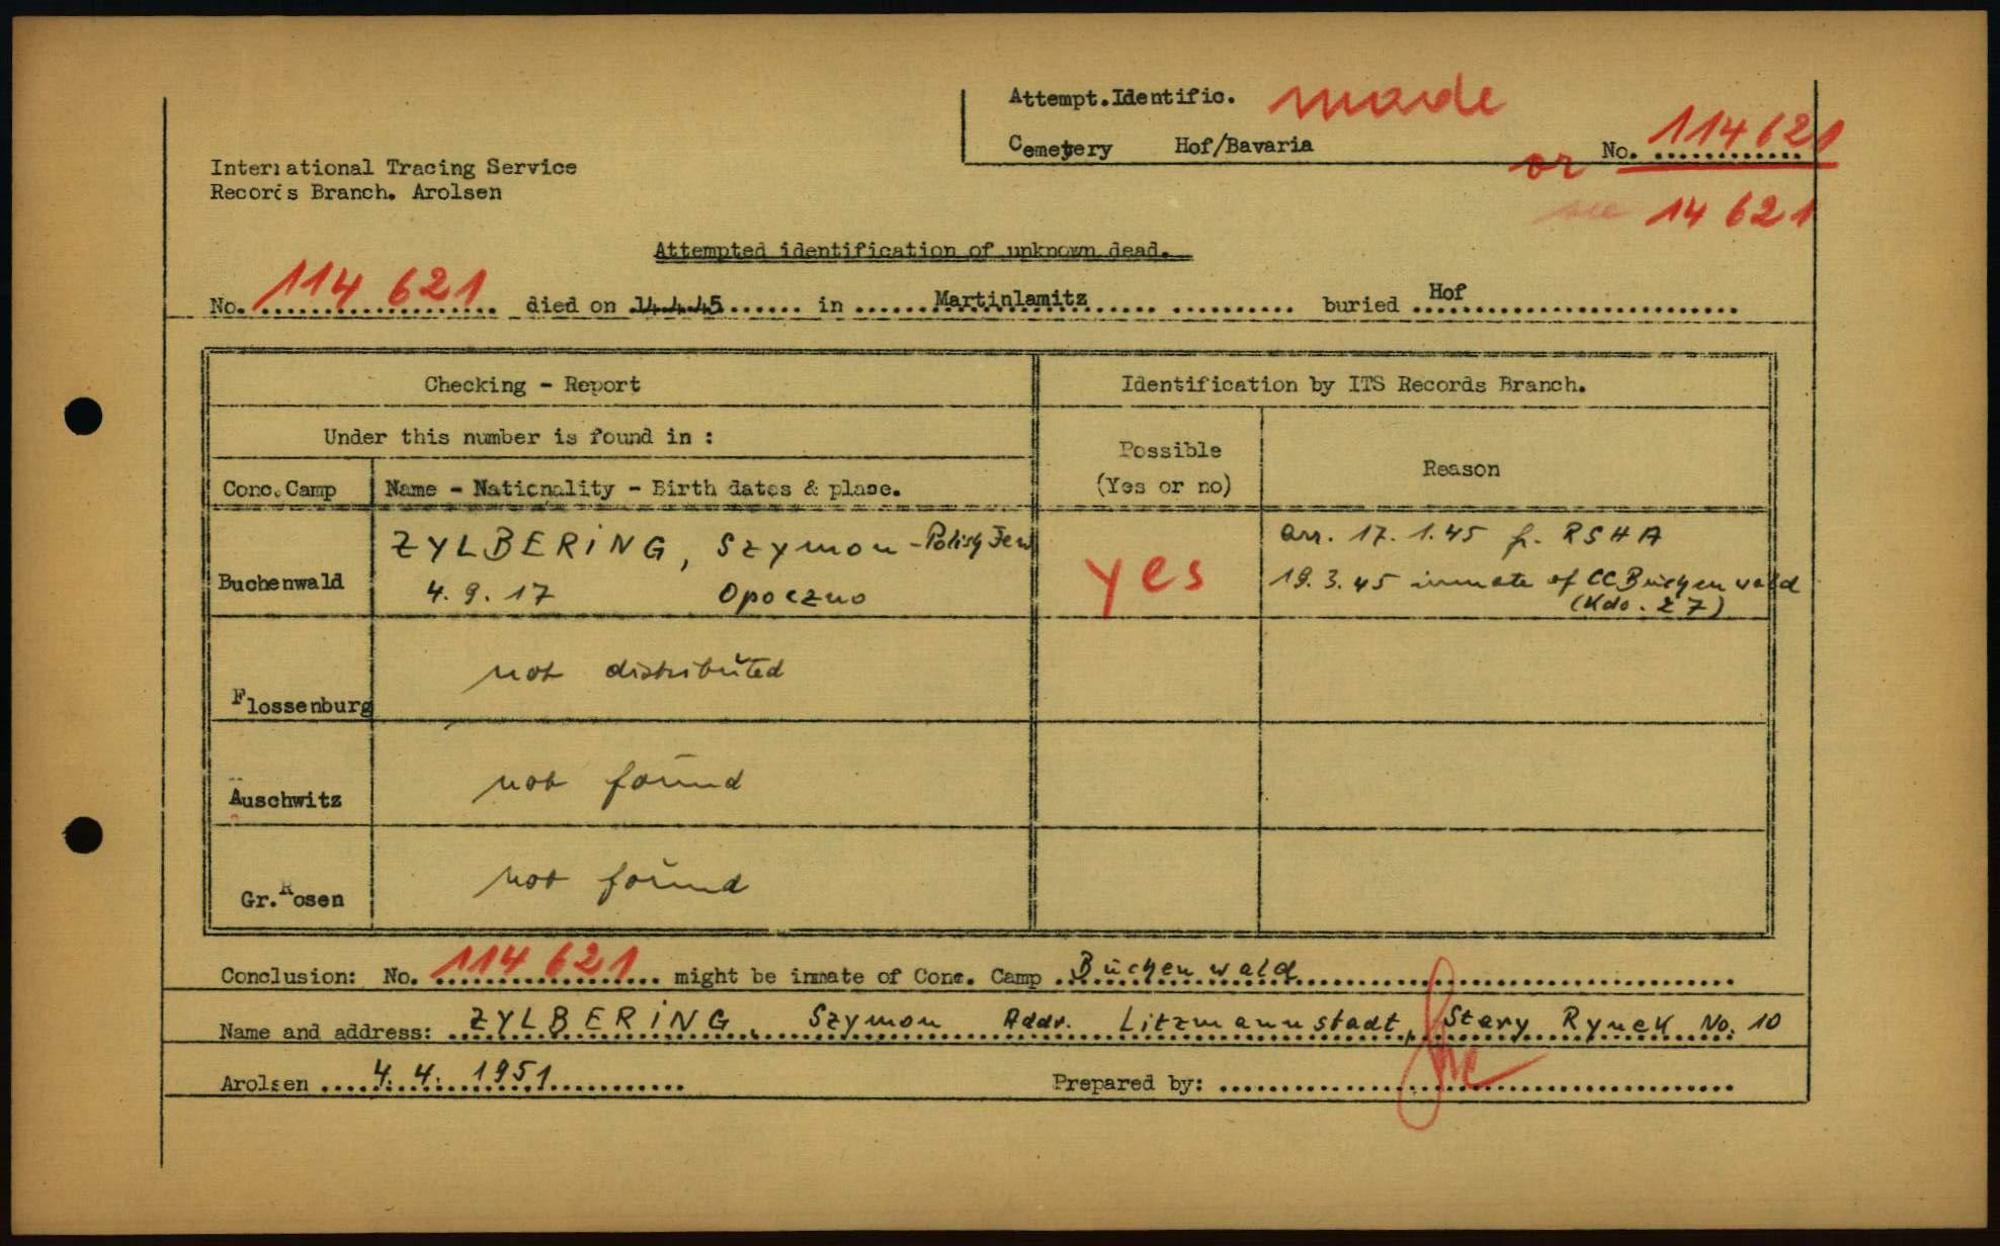 Attempt.Identific. made
Cemetery Hof/Bavaria No. 114621
or
14 621
International Tracing Service
Records Branch. Arolsen
Attempted identification of unknown dead.
No. 114 621 died on 14.4.45 in Martinlamitz buried Hof
Checking - Report Identification by ITS Records Branch.
Under this number is found in :
Possible
(Yes or no) Reason
Conc.Camp Name - Nationality - Birth dates & place.
Buchenwald ZYLBERING, Szymon - Polish Jew yes arr. 17.1.45 fr. RSHA
4.9.17 Opoczno 19.3.45 inmate of CC Buchenwald
(Kdo. Z 7)
Flossenburg not distributed
Auschwitz not found
Gr.Rosen not found
Conclusion: No. 114 621 might be inmate of Conc. Camp Buchenwald
Name and address: ZYLBERING, Szymon Addr. Litzmannstadt, Stary Rynek No. 10
Arolsen 4. 4. 1951 Prepared by: